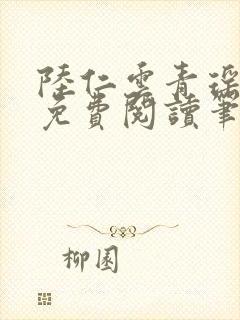 陸仁雲青瑶
免費閱讀筆
柳園